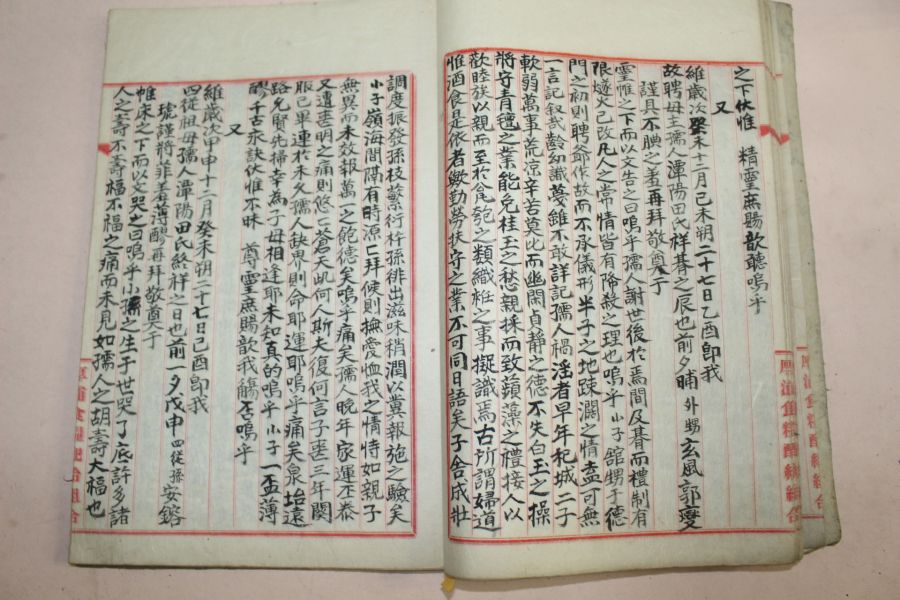 之下伏惟 精靈庶賜歆聽嗚乎
又
維歲次癸未十二月己未朔二十七日乙酉卽我
故聘母孺人潭陽田氏祥朞之辰也前夕晡 外甥玄風郭燮
謹具不腆之羞再拜敬奠于
靈惟之下而以文告之曰嗚乎孺人謝世後於焉間及朞而禮制有
限燧火已改凡人之常情皆有降殺之理也嗚乎 小子舘甥于德
門之初則聘爺作故而不承儀形半子之地踈濶之情盍可無
一言記叙哉齡幼識蔑雖不敢詳記孺人禍淫者早年杞城二子
軟弱萬事荒凉辛苦莫比而幽閑貞靜之德不失白玉之操
將守青氊之業能免桂玉之愁親採而致蘋藻之禮接人以
歡睦族以親而至於 之類織紝之事擬識焉古所謂婦道
惟酒食是依者 勤勞扶守之業不可同日語矣子舍成壯
調度振發孫枝蘩衍杵孫徘出滋味稍潤以冀報施之驗矣
小子嶺海間隔有時源〻拜候則撫愛恤我之情恃如親子
無異而未效報萬一之飽德矣嗚乎痛矣孺人晚年家運丕泰
又遭喪明之痛則悠〻蒼天此何人斯夫復何言子喪三年関
服已畢連於未久孺人缺界則命耶運耶嗚乎痛矣泉坮遠
路允賢先掃幸爲子母相逢耶未知真的嗚乎小子一盃薄
醪千古永訣伏惟不昧 尊靈庶賜歆我觴丕嗚乎
又
維歲次甲申十二月癸未朔二十七日己酉卽我
四從祖母孺人潭陽田氏終祥之日也前一夕戊申 四從孫安鎔
琥謹將菲羞薄醪再拜敬奠于
帷床之下而以文哭之曰嗚乎小孫之生于世哭了底許多諸
人之壽不壽福不福之痛而未見如孺人之胡壽大福也